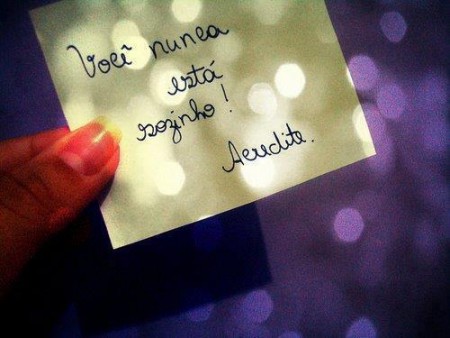 Você nunca
está
sozinho!
Acredite.